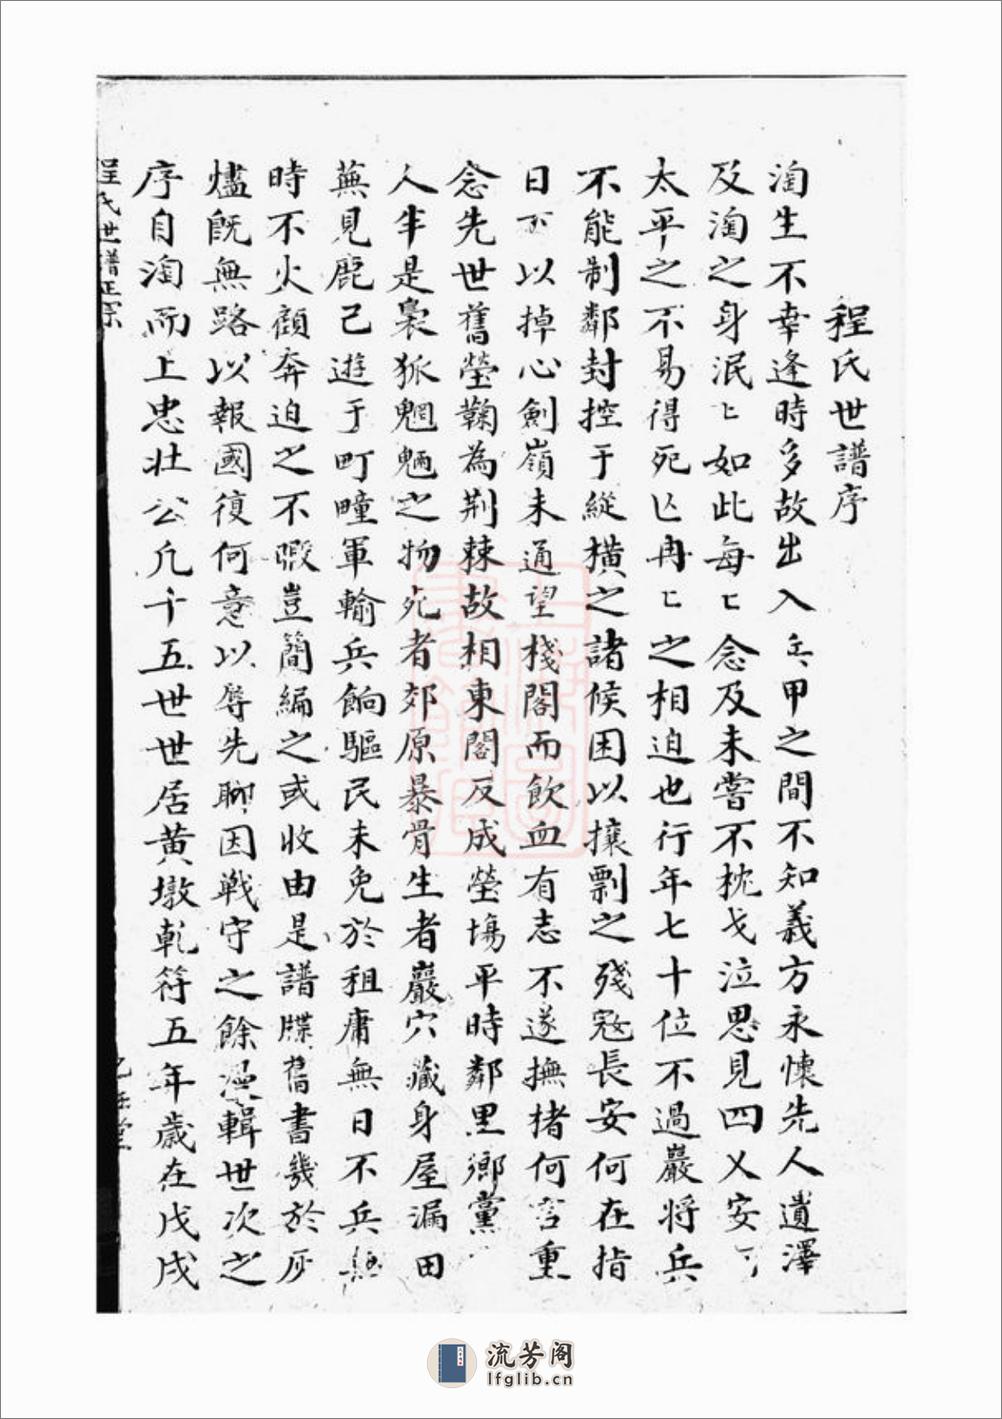 程氏世譜序
淘生不幸逢時多故出入兵甲之間不知義方永懷先人遺澤
及淘之身泯〻如此每〻念及未嘗不枕戈泣思見四乂安
太平之不易得死亾冉〻之相迫也行年七十位不過嚴將兵
不能制鄰封控于縱橫之諸候困以攘剽之殘冦長安何在指
日以掉心劍嶺未通望棧閣而飲血有志不遂撫楮何言重
念先世舊塋鞠為荆棘故相東閣反成塋塲平時鄰里鄉黨
人半是裊狐魍魎之物死者郊原暴骨生者巖穴藏身屋漏田
蕪見鹿己遊于町疃軍輸兵餉驅民未免於租庸無日不兵
時不火顧奔迫之不暇豈簡編之或收由是譜牒舊書幾於灰
燼既無路以報國復何意以辱先聊因戰守之餘漫輯世次之
序自淘而上忠壯公凢十五世世居黄墩乾符五年歲在戊戌
程氏世譜正宗
流芳阁
lfglib.cn